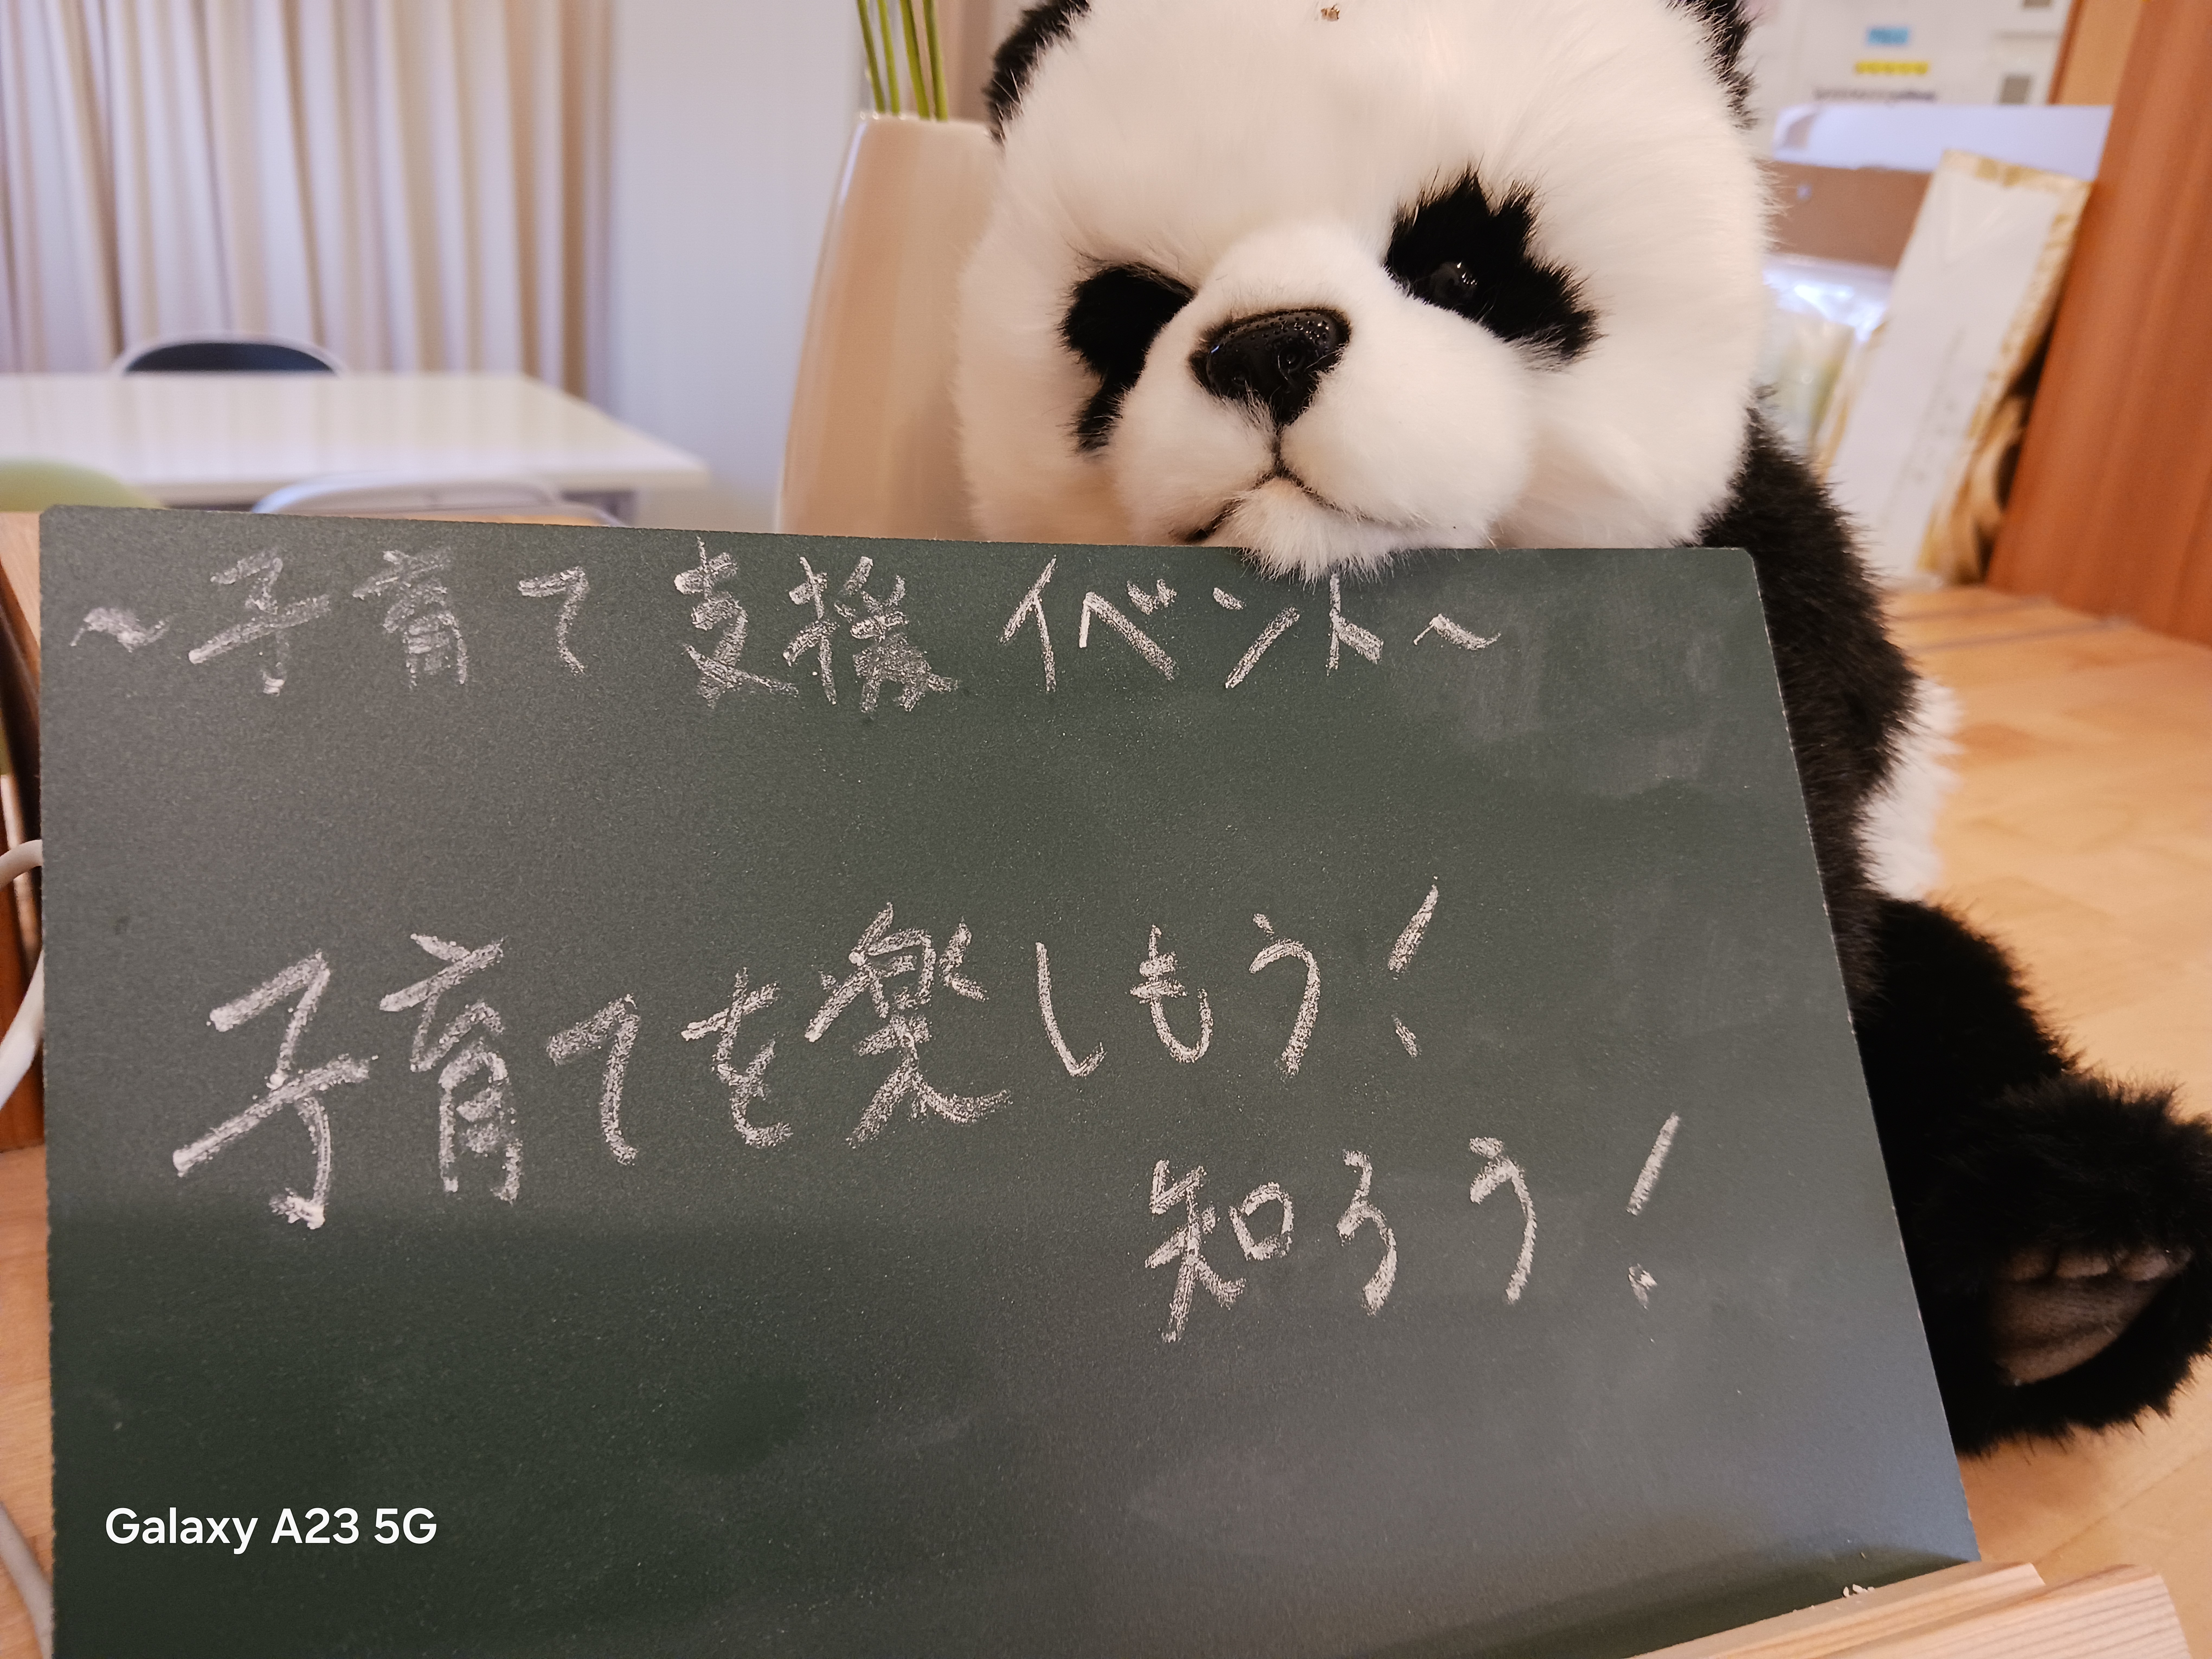 ～子育て支援イベント～
子育てを楽しもう!
知ろう!
Galaxy A23 5G